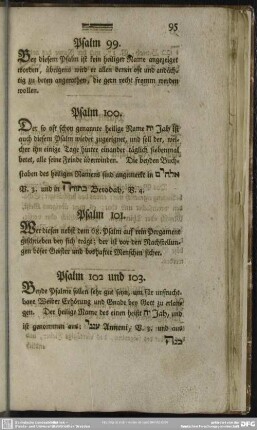 95
Psalm 99.
Bey diesem Psalm ist kein heiliger Name angezeiget
worden, übrigens wird er allen denen oft und andäch-
tig zu beten angerathen, die gern recht fromm werden
wollen.
Psalm 100.
Der so oft schon genannte heilige Name יה Jah ist
auch diesem Psalm wieder zugeeignet, und soll der, wel-
cher ihn einige Tage hinter einander täglich siebenmal
betet, alle seine Feinde überwinden. Die beyden Buch-
staben des heiligen Namens sind angemerkt in
V. 3. und in Berodah, V. 4.
Psalm 101.
Wer diesen nebst dem 68. Psalm auf rein Pergament
geschrieben bey sich trägt: der ist vor den Nachstellun-
gen böser Geister und boshafter Menschen sicher.
Psalm 102 und 103.
Beyde Psalme sollen sehr gut seyn, um für unfrucht-
bare Weiber Erhörung und Gnade bey Gott zu erlan-
gen. Der heilige Name des einen heißt יה Jah, und
ist genommen aus: ענני Anneni, V. 3. und aus